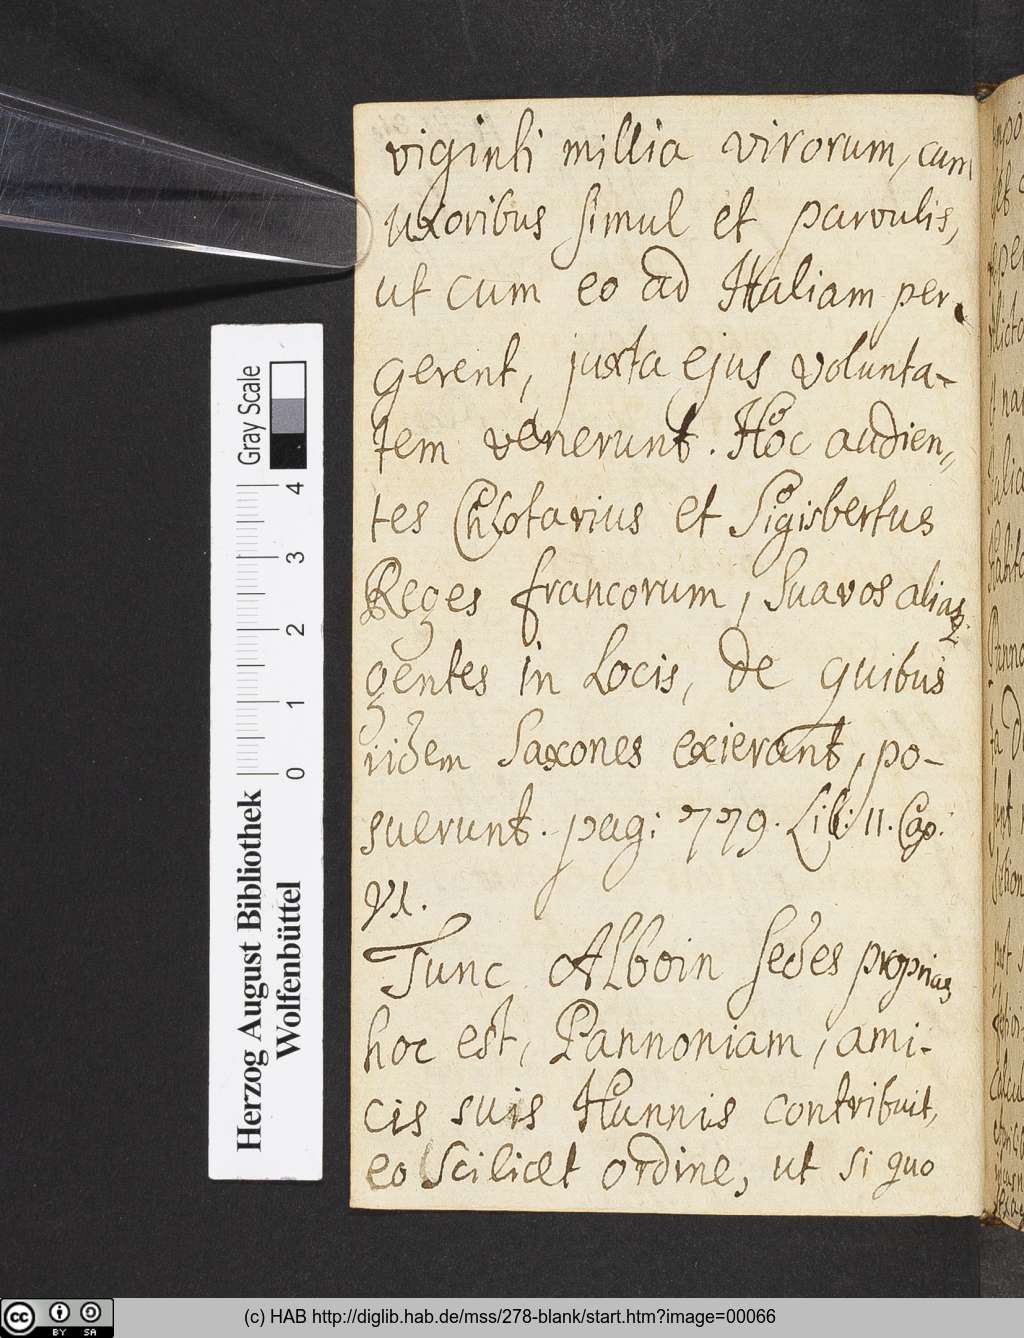 viginti millia virorum, cum
uxoribus simul et parvulis,
ut cum eo ad Italiam per-
gerent, juxta ejus volunta-
tem venerunt. Hoc audien„
tes Chlotarius et Sigisbertus
Reges francorum, Suavos aliasq:
gentes in Locis, de quibus
iidem Saxones exierant, po-
suerunt. pag: 779. Lib: II. Cap.
VI.
Tunc Alboin sedes proprias
hoc est, Pannoniam, ami-
cis suis Hunnis contribuit,
eo scilicet ordine, ut si quo
Gray Scale
4
3
2
1
0
Herzog August Bibliothek
Wolfenbüttel
cc BY SA
(c) HAB http://diglib.hab.de/mss/278-blank/start.htm?image=00066